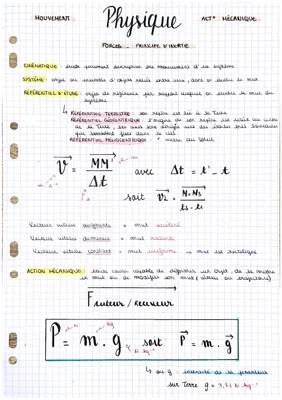 MOUVEMENT
Physique
ACT° MÉCANIQUE
FORCES - PRINCIPE D'INERTIE
CINÉMATIQUE : étude purement descriptive du mouvement d'un système
SYSTÈME : objet ou ensemble d'objets reliés entre eux, dont on étudie le mvt
RÉFÉRENTIEL D'ÉTUDE : objet de référence par rapport auquel on étudie le mvt du
système
↳ RÉFÉRENTIEL TERRESTRE : son repère est lié à la Terre
RÉFÉRENTIEL GÉOCENTRIQUE : l'origine de son repère est située au centre
de la Terre, les axes sont dirigés vers des étoiles très lointaines
que considérées fixes dans le ciel
RÉFÉRENTIEL HÉLIOCENTRIQUE : centre du Soleil
V = MM' / Δt avec Δt = t' - t
soit V2 = M1M3 / t3 - t1
Vecteur vitesse augmente = mvt accéléré
Vecteur vitesse diminue = mvt ralenti
Vecteur vitesse constant = mvt uniforme → mvt est rectiligne
ACTION MÉCANIQUE : toute cause capable de déformer un objet, de le mettre
en mvt ou de modifier son mvt (vitesse ou trajectoire)
F auteur / receveur
P = m . g soit P = m . g
↳ où g = intensité de la pesanteur
sur Terre g = 9,81 N.kg⁻¹